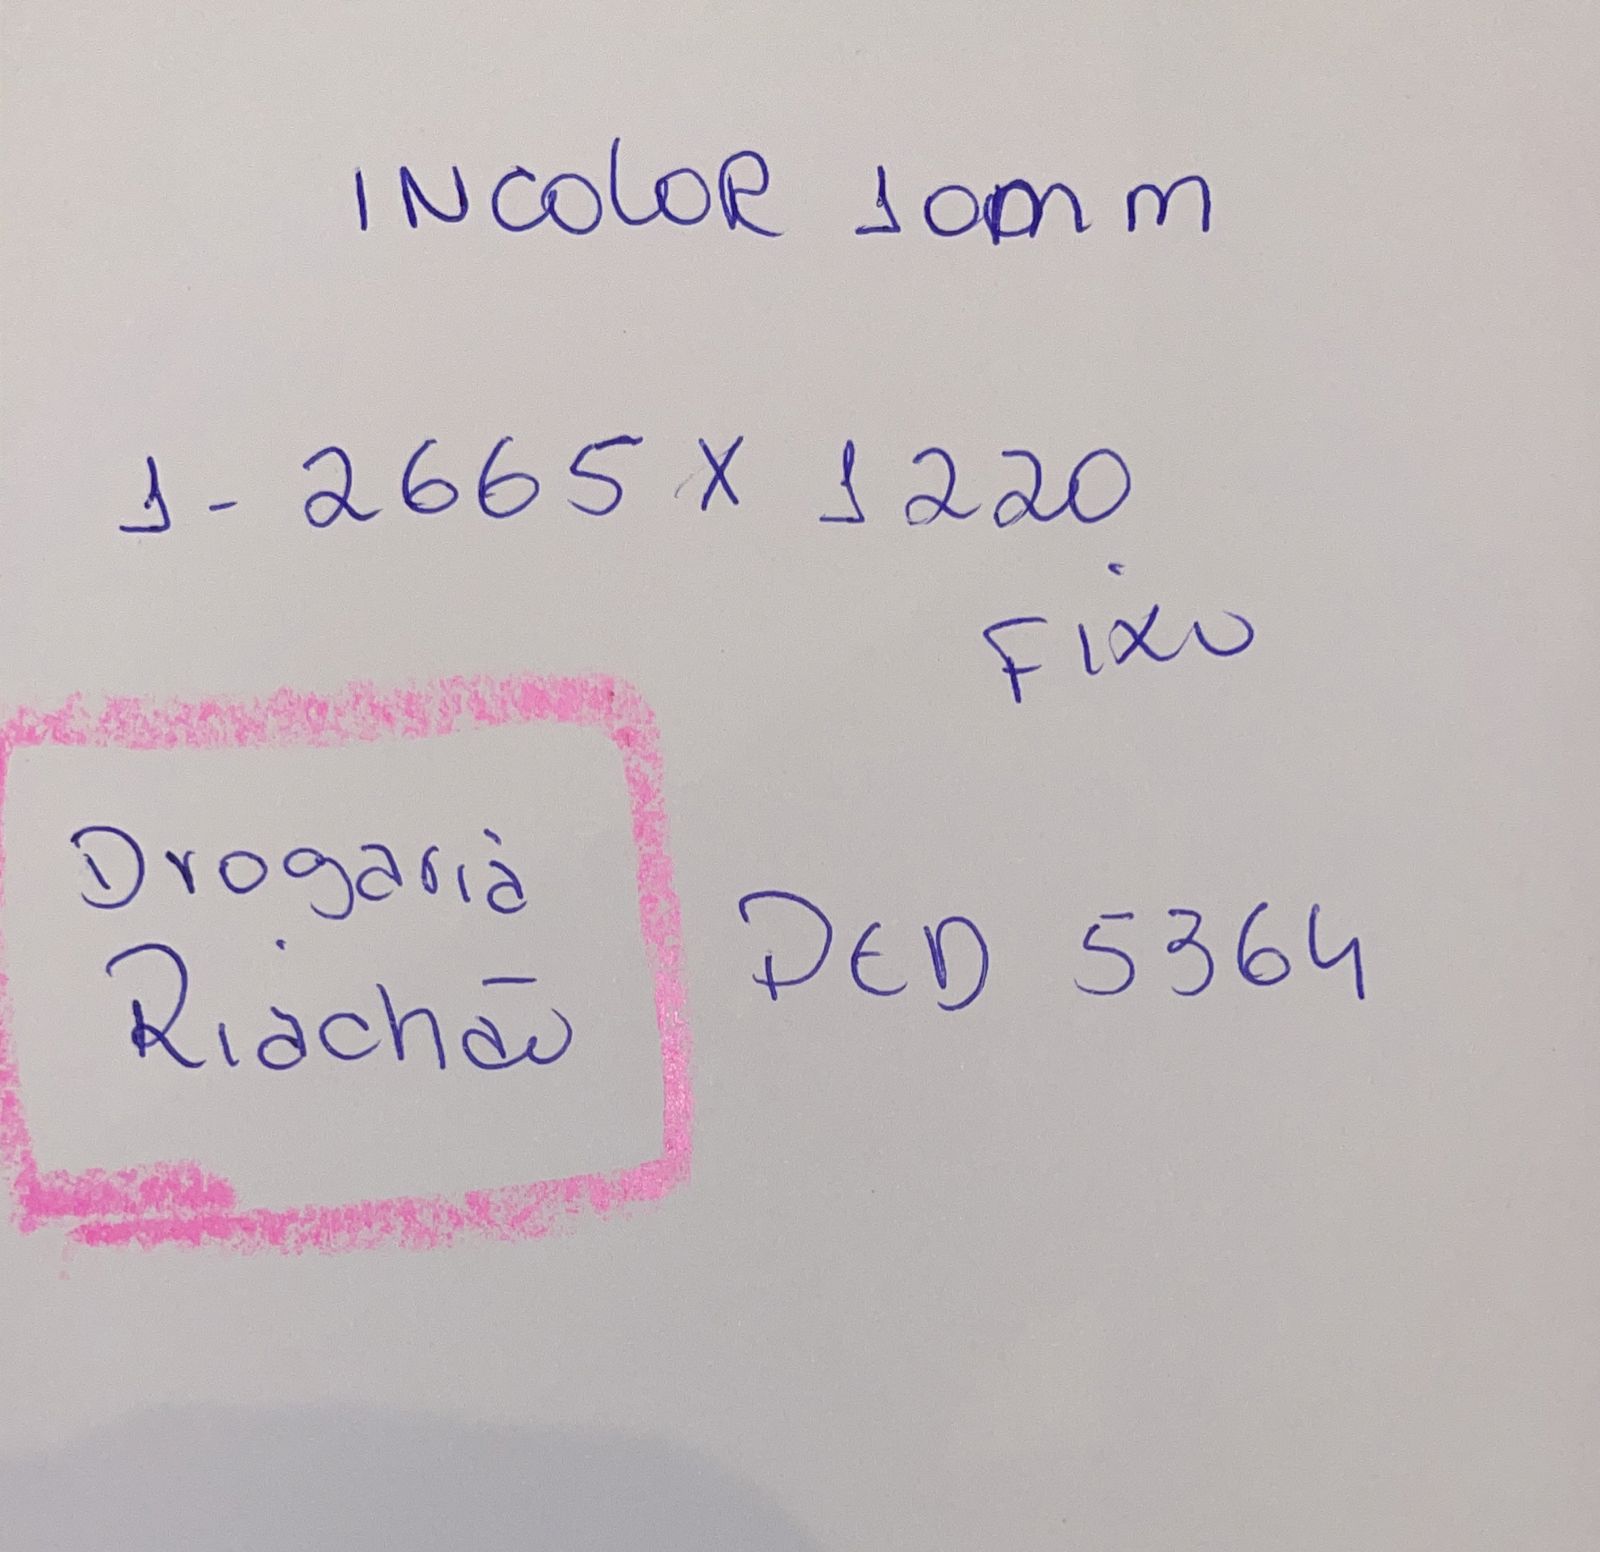 INCOLOR 10mm
1- 2665 X 1220
Fixo
Drogaria
Riachão
PED 5364